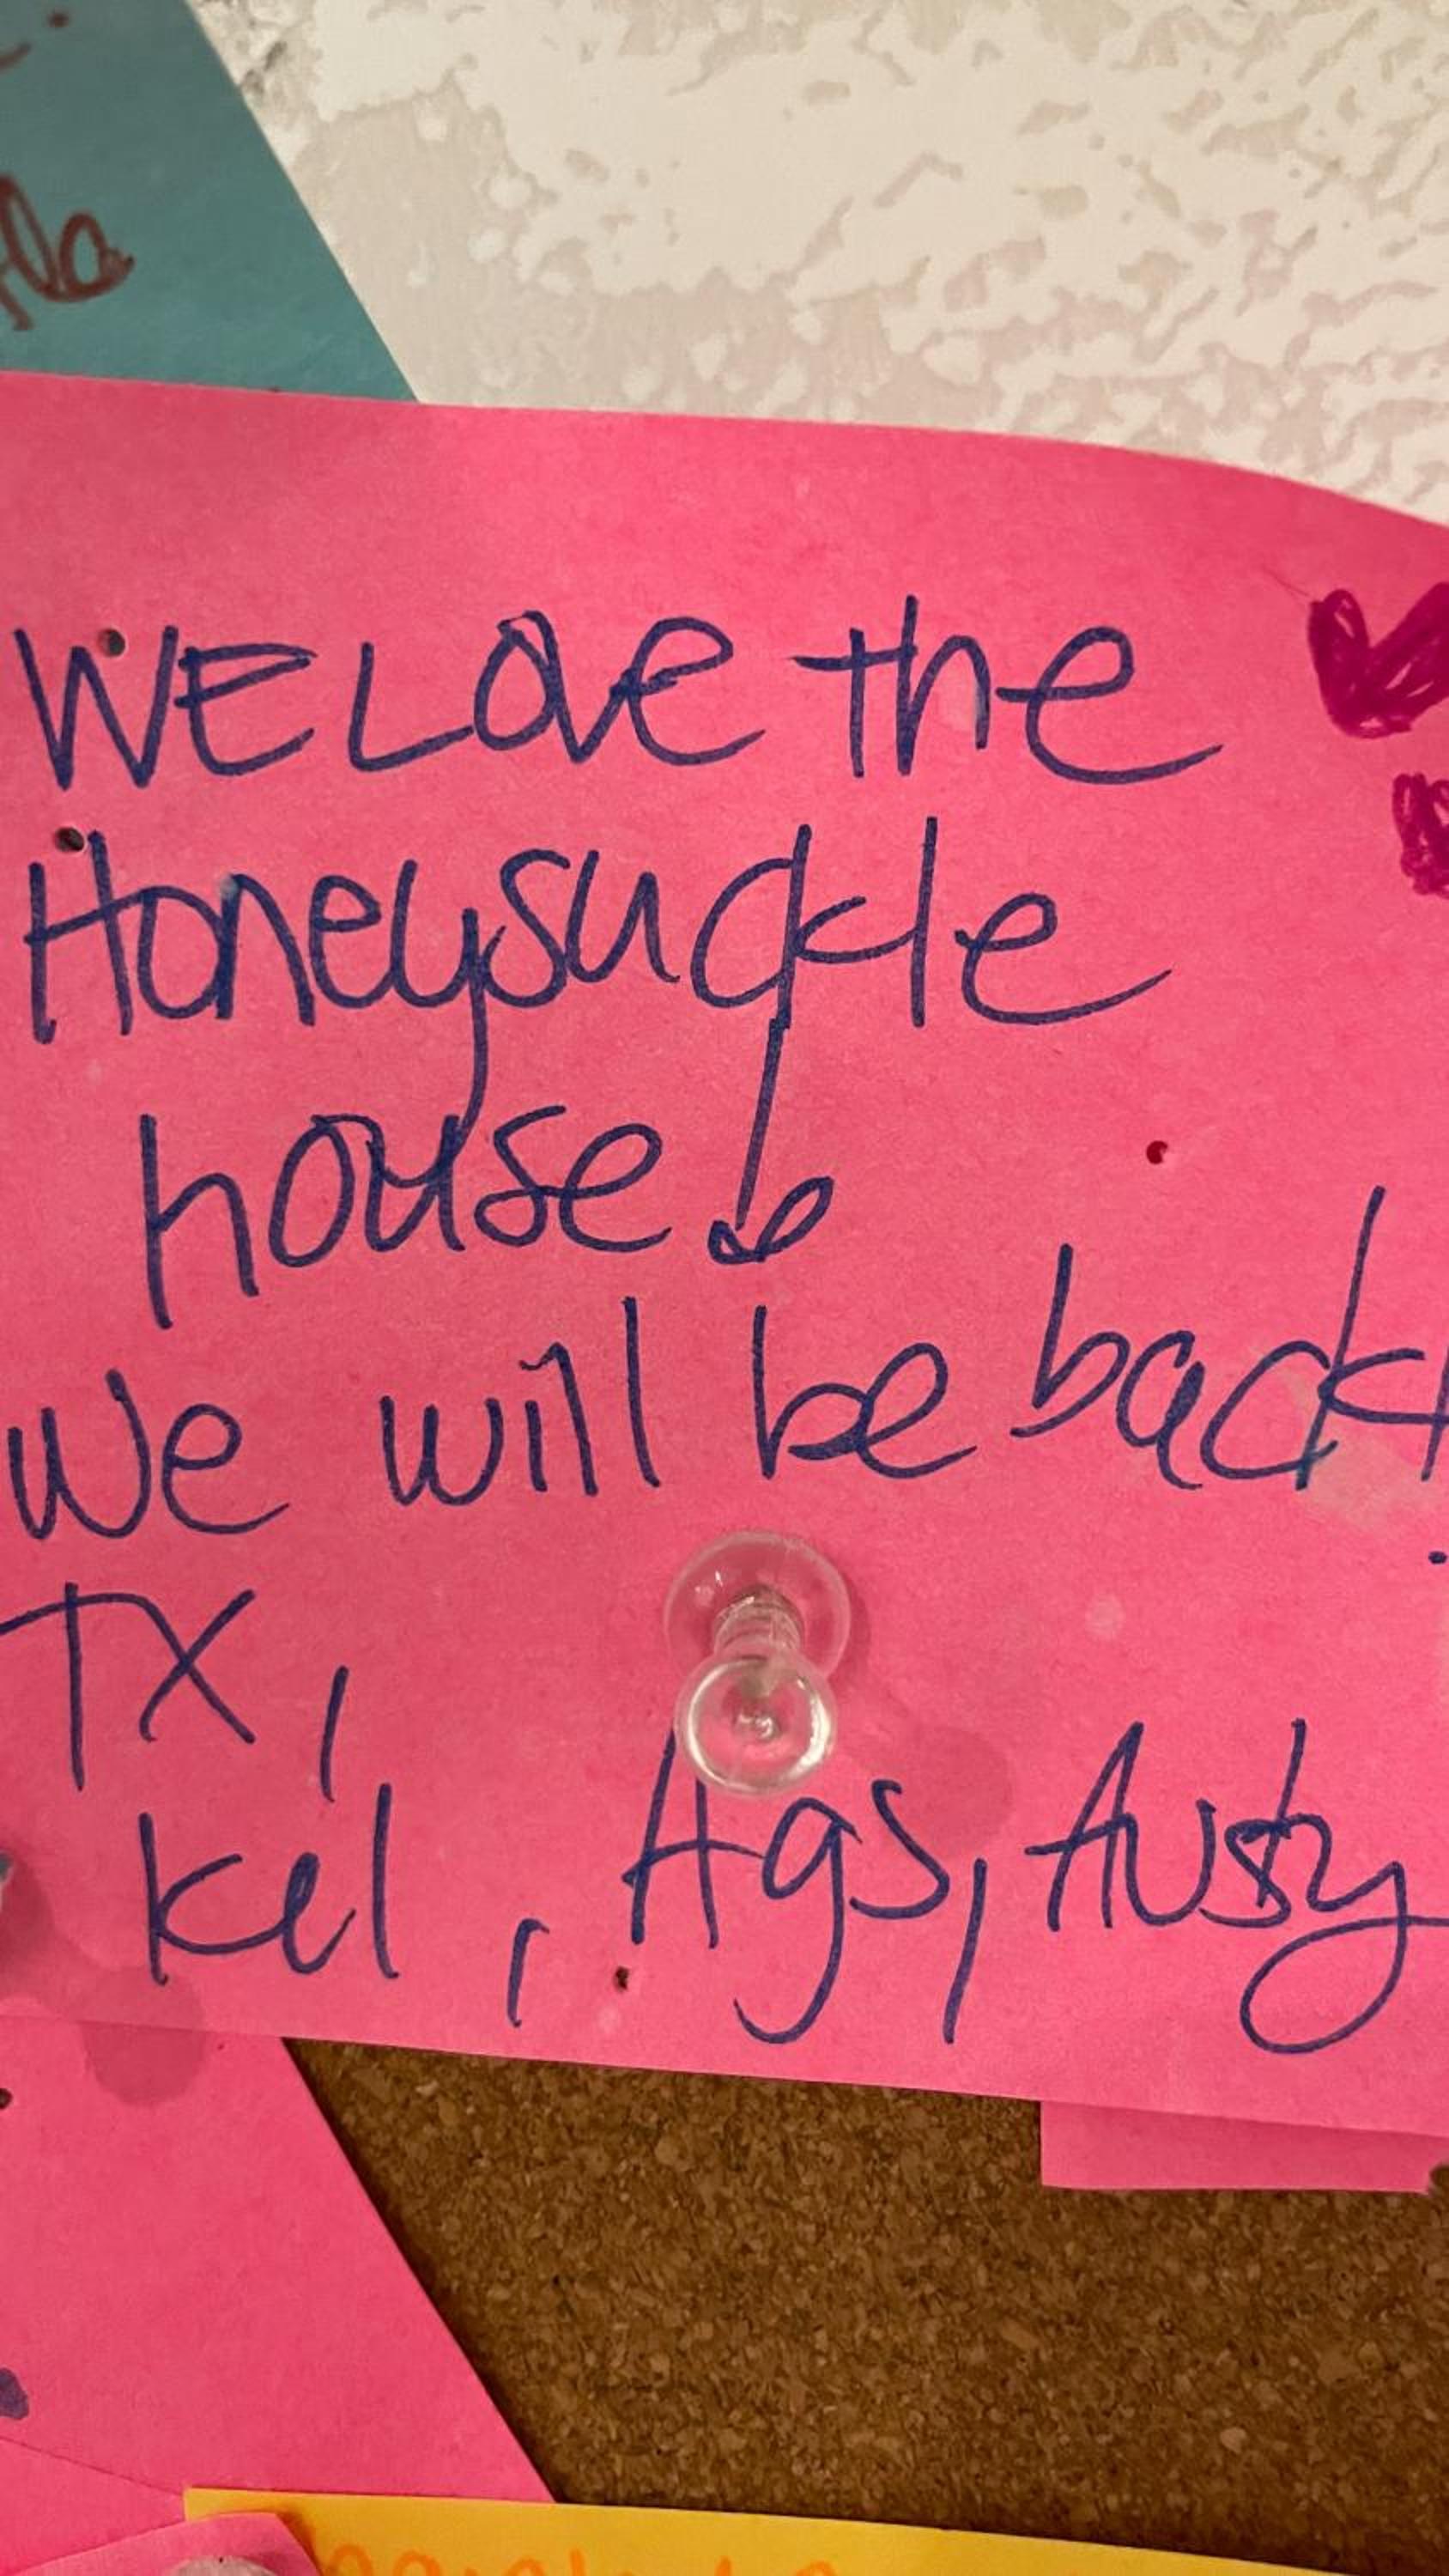 WE LOVE the
Honeysuckle
house!
We will be back!
TX,
Kel, Ags, Austy